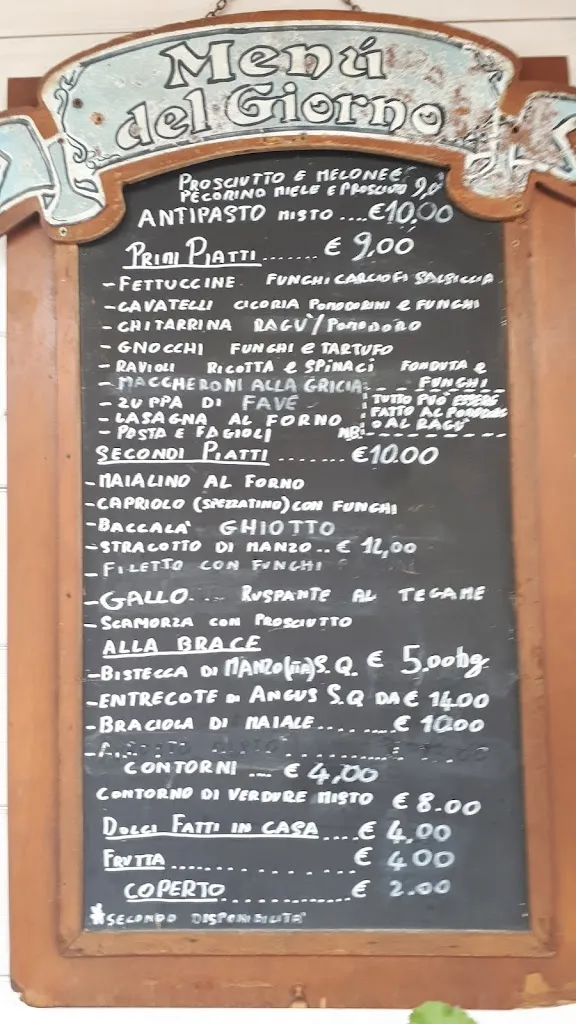 Menú
del Giorno
PROSCIUTTO E MELONE €
PECORINO MIELE E PROSCIUTTO 9,0
ANTIPASTO MISTO .... €10,00
PRIMI PIATTI ....... € 9,00
- FETTUCCINE FUNGHI CARCIOFI SALSICCIA
- CAVATELLI CICORIA POMODORINI e FUNGHI
- CHITARRINA RAGÙ/POMODORO
- GNOCCHI FUNGHI e TARTUFO
- RAVIOLI RICOTTA e SPINACI FONDUTA e
- MACCHERONI ALLA GRICIA FUNGHI
- ZUPPA DI FAVE TUTTO PUO' ESSERE
- LASAGNA AL FORNO FATTO AL POMODORO
- PASTA E FAGIOLI NB: O AL RAGÙ
SECONDI PIATTI ....... €10.00
- MAIALINO AL FORNO
- CAPRIOLO (SPEZZATINO) CON FUNGHI
- BACCALA' GHIOTTO
- STRACOTTO DI MANZO .. € 12,00
- FILETTO CON FUNGHI
- GALLO.... RUSPANTE AL TEGAME
- SCAMORZA CON PROSCIUTTO
ALLA BRACE
- BISTECCA DI MANZO S.Q. € 5,00 hg
- ENTRECOTE DI ANGUS S.Q DA € 14.00
- BRACIOLA DI MAIALE ......... € 10.00
CONTORNI .... € 4,00
CONTORNO DI VERDURE MISTO € 8.00
DOLCI FATTI IN CASA .... € 4,00
FRUTTA .................. € 4 00
COPERTO ............ € 2.00
*SECONDO DISPONIBILITA'